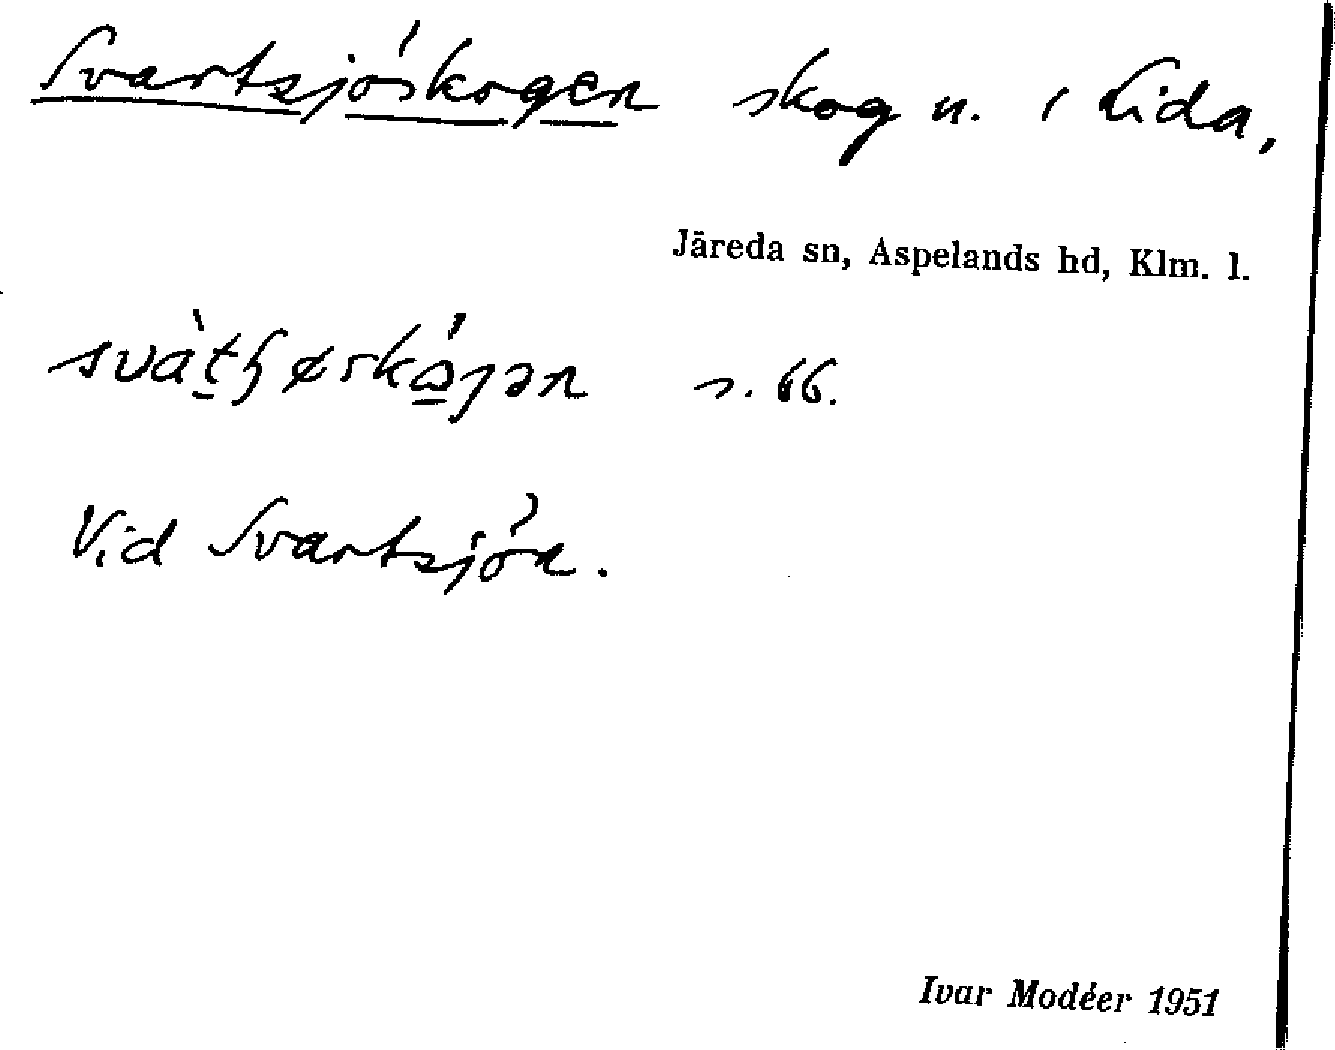 Svartsjöskogen skog n. i Lida,
Järeda sn, Aspelands hd, Klm. l.
s. 66.
Vid Svartsjön.
Ivar Modéer 1951